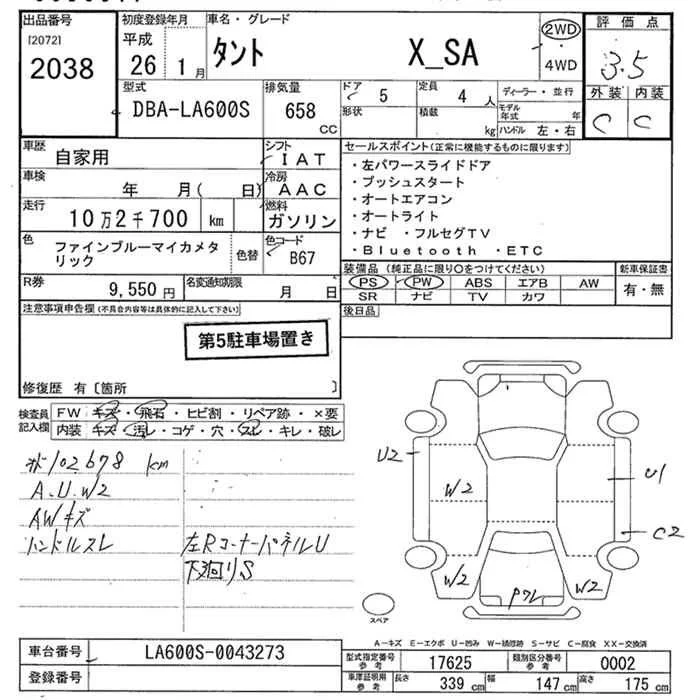 出品番号 初度登録年月 車名・グレード 評価点
[2072] 平成 2WD
2038 26 1月 タント X_SA ・ 3.5
4WD
型式 排気量 ドア 5 定員 4 人 ディーラー・並行 外装 内装
DBA-LA600S 658 cc 形状 積載 kg モデル年式 年 C C
ハンドル 左・右
車歴 自家用 シフト IAT セールスポイント(正常に機能するものに限ります)
車検 年 月( 日) 冷房 AAC ・左パワースライドドア
・プッシュスタート
走行 10万2千700 km 燃料 ガソリン ・オートエアコン
・オートライト
色 ファインブルーマイカメタリック 色替 色コード B67 ・ナビ ・フルセグTV
・Bluetooth ・ETC
R券 9,550円 名変通知期限 月 日 装備品(純正品に限り○をつけてください) 新車保証書
PS PW ABS エアB AW 有・無
SR ナビ TV カワ
注意事項申告欄(不具合内容等は具体的に記入して下さい) 後日品
第5駐車場置き
修復歴 有〔箇所 〕
検査員記入欄 FW キズ・飛石・ヒビ割・リペア跡・×要
内装 キズ・汚レ・コゲ・穴・スレ・キレ・破レ
102678 km
A.U.W2
AWキズ
ハンドルスレ 左RコーナーパネルU
下廻りS
U2
W2 U1
C2
W2 W2
スペア
A-キズ E-エクボ U-凹み W-補修跡 S-サビ C-腐食 XX-交換済
車台番号 LA600S-0043273 型式指定番号 参考 17625 類別区分番号 参考 0002
登録番号 車庫証明用 参考 長さ 339 cm 幅 147 cm 高さ 175 cm